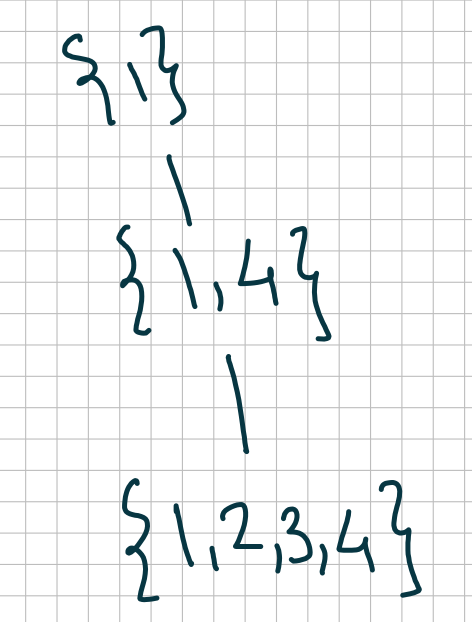 {1}
{1,4}
{1,2,3,4}